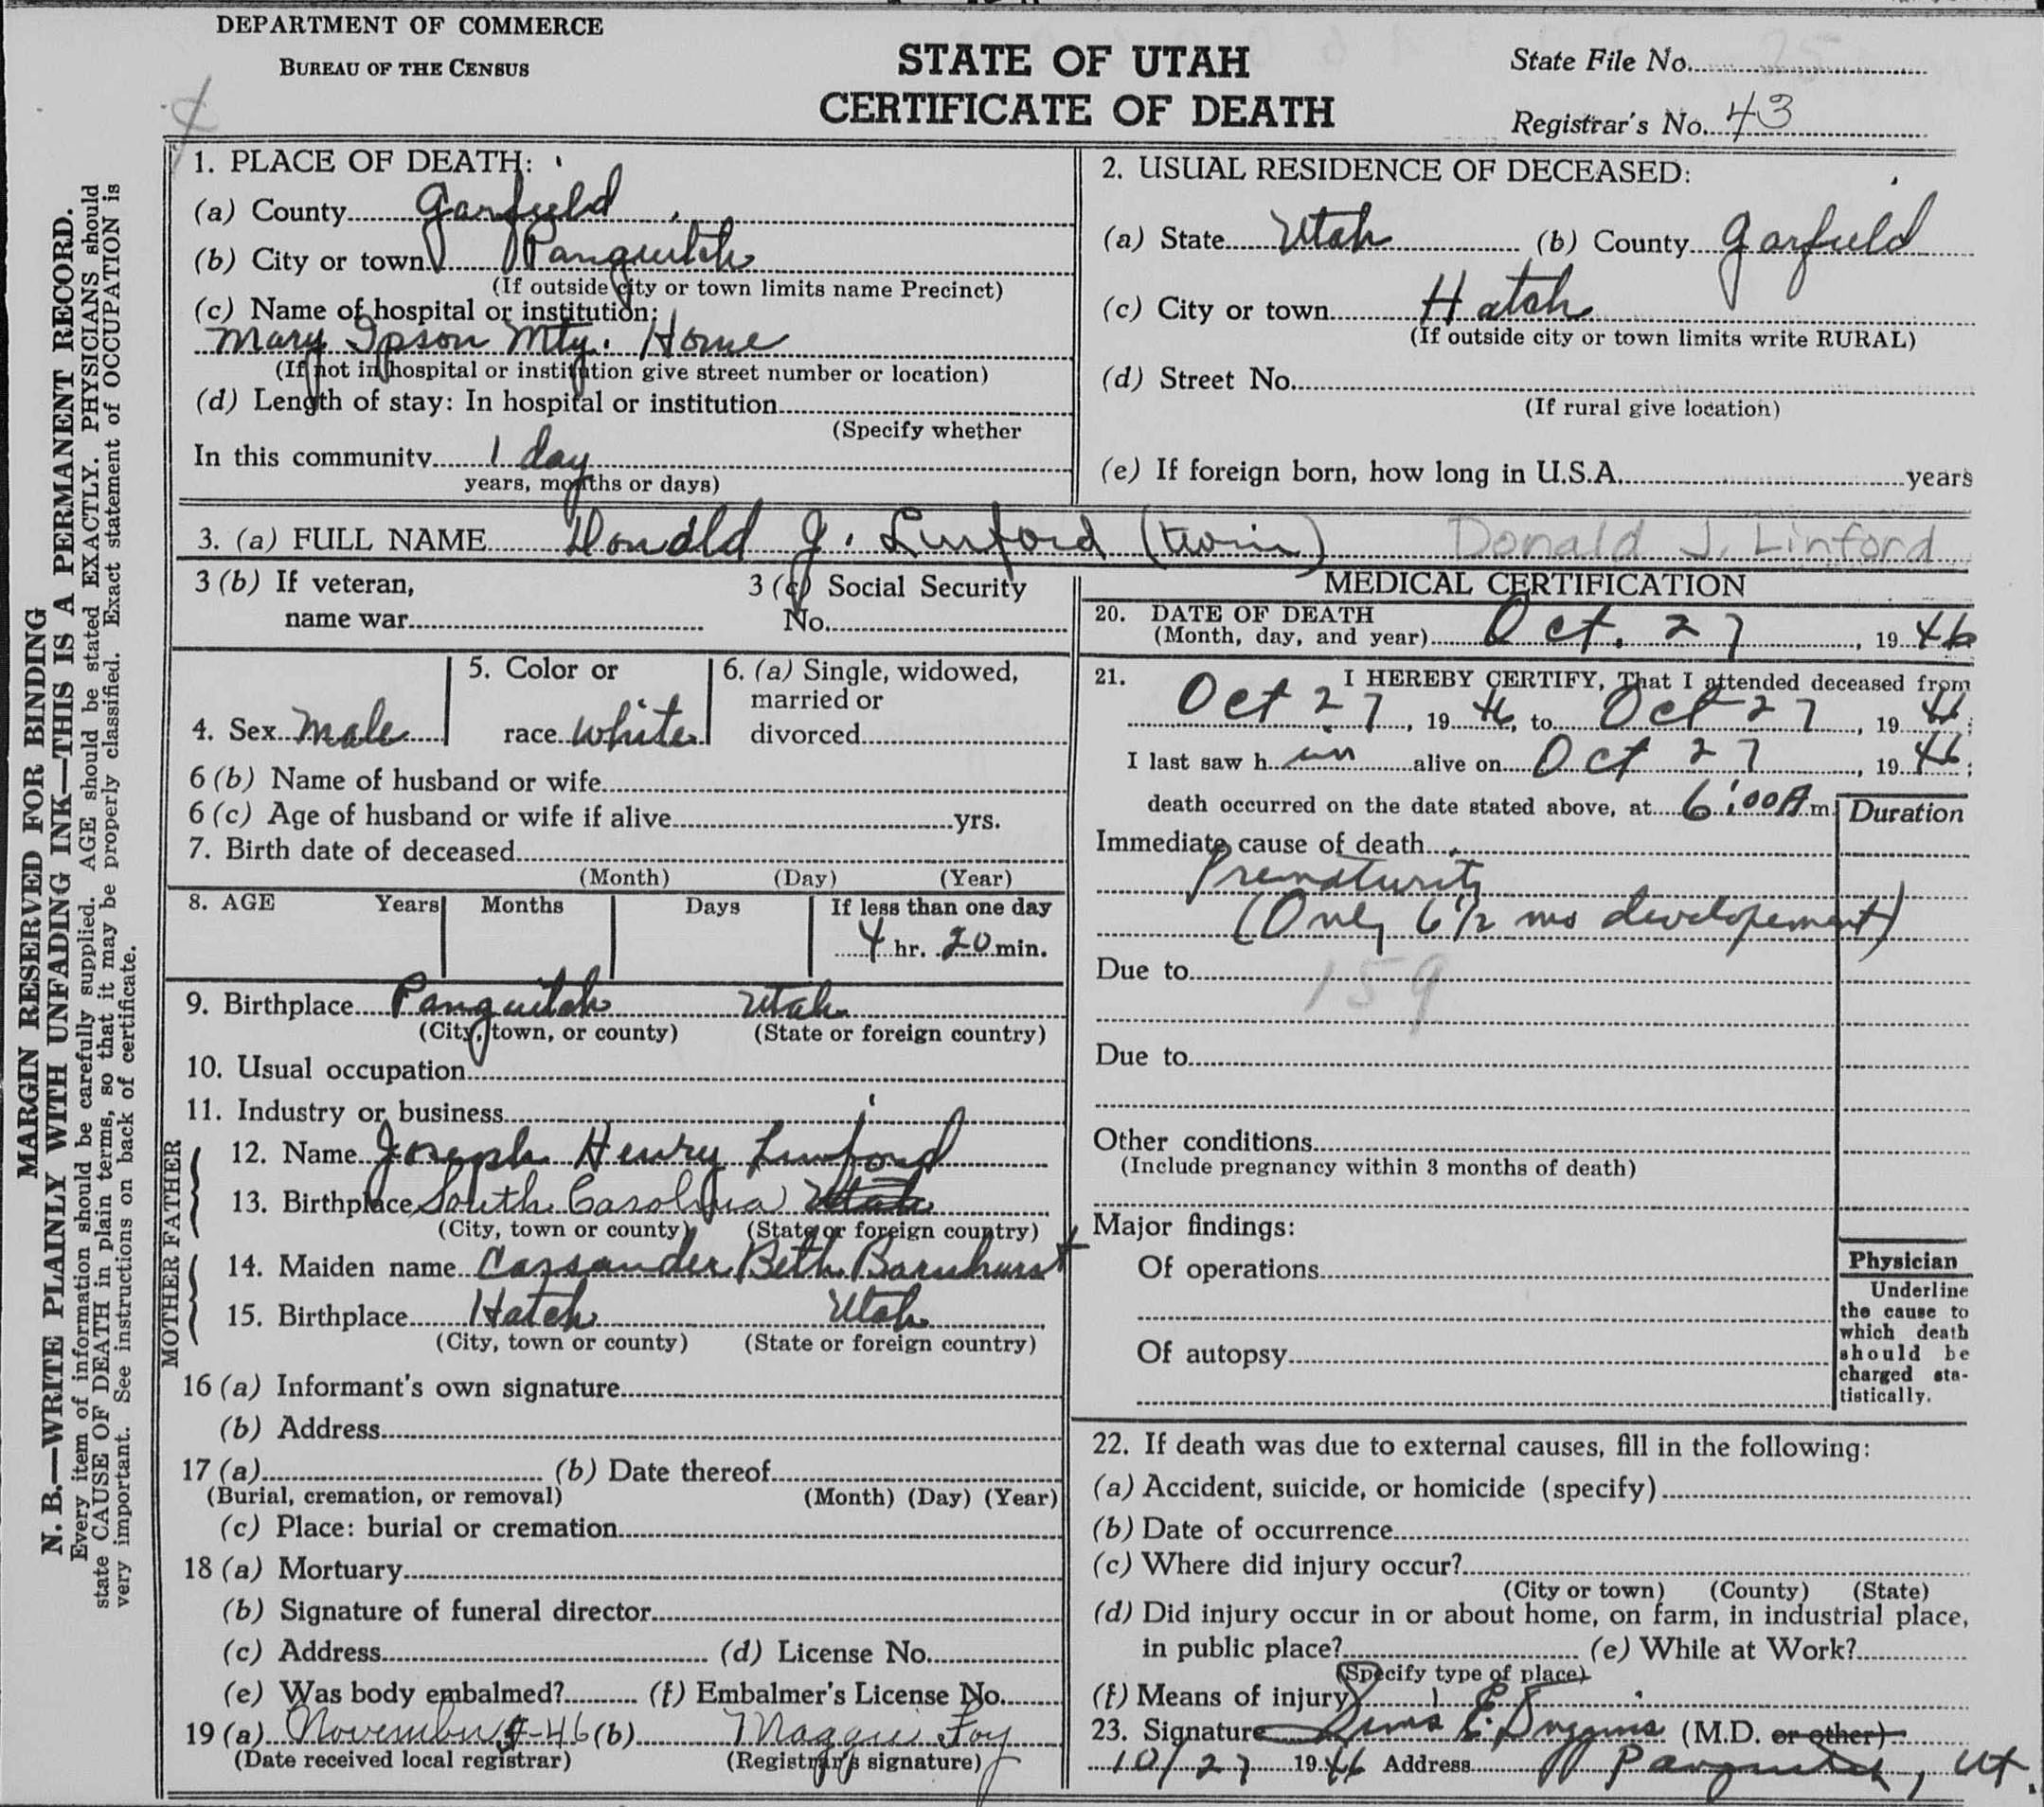 DEPARTMENT OF COMMERCE
BUREAU OF THE CENSUS
STATE OF UTAH
CERTIFICATE OF DEATH
State File No. 25
Registrar's No. 43
MARGIN RESERVED FOR BINDING
N. B.—WRITE PLAINLY WITH UNFADING INK—THIS IS A PERMANENT RECORD.
Every item of information should be carefully supplied. AGE should be stated EXACTLY. PHYSICIANS should
state CAUSE OF DEATH in plain terms, so that it may be properly classified. Exact statement of OCCUPATION is
very important. See instructions on back of certificate.
1. PLACE OF DEATH:
(a) County Garfield
(b) City or town Panguitch
(If outside city or town limits name Precinct)
(c) Name of hospital or institution:
Mary Ipson Mty. Home
(If not in hospital or institution give street number or location)
(d) Length of stay: In hospital or institution
(Specify whether
In this community 1 day
years, months or days)
2. USUAL RESIDENCE OF DECEASED:
(a) State Utah (b) County Garfield
(c) City or town Hatch
(If outside city or town limits write RURAL)
(d) Street No.
(If rural give location)
(e) If foreign born, how long in U.S.A. years
3. (a) FULL NAME Donald J. Linford (twin) Donald J. Linford
3 (b) If veteran,
name war
3 (c) Social Security
No.
4. Sex male
5. Color or
race white
6. (a) Single, widowed,
married or
divorced
6 (b) Name of husband or wife
6 (c) Age of husband or wife if alive yrs.
7. Birth date of deceased
(Month) (Day) (Year)
8. AGE Years Months Days If less than one day
4 hr. 20 min.
9. Birthplace Panguitch Utah
(City, town, or county) (State or foreign country)
10. Usual occupation
11. Industry or business
FATHER
12. Name Joseph Henry Linford
13. Birthplace South Carolina Utah
(City, town or county) (State or foreign country)
MOTHER
14. Maiden name Cassander Beth Barnhurst
15. Birthplace Hatch Utah
(City, town or county) (State or foreign country)
16 (a) Informant's own signature
(b) Address
17 (a) (b) Date thereof
(Burial, cremation, or removal) (Month) (Day) (Year)
(c) Place: burial or cremation
18 (a) Mortuary
(b) Signature of funeral director
(c) Address (d) License No.
(e) Was body embalmed? (f) Embalmer's License No.
19 (a) November -46 (b) Maggie Foy
(Date received local registrar) (Registrar's signature)
MEDICAL CERTIFICATION
20. DATE OF DEATH
(Month, day, and year) Oct. 27, 1946
21. I HEREBY CERTIFY, That I attended deceased from
Oct 27, 1946, to Oct 27, 1946;
I last saw h im alive on Oct 27, 1946;
death occurred on the date stated above, at 6:00 A.m.
Duration
Immediate cause of death
Prematurity
(Only 6 1/2 mo developement)
Due to 159
Due to
Other conditions
(Include pregnancy within 3 months of death)
Major findings:
Of operations
Of autopsy
Physician
Underline
the cause to
which death
should be
charged sta-
tistically.
22. If death was due to external causes, fill in the following:
(a) Accident, suicide, or homicide (specify)
(b) Date of occurrence
(c) Where did injury occur?
(City or town) (County) (State)
(d) Did injury occur in or about home, on farm, in industrial place,
in public place? (e) While at Work?
(Specify type of place)
(f) Means of injury
23. Signature Sims E. Duggins (M.D. or other)
10/27 1946 Address Panguitch, Ut.